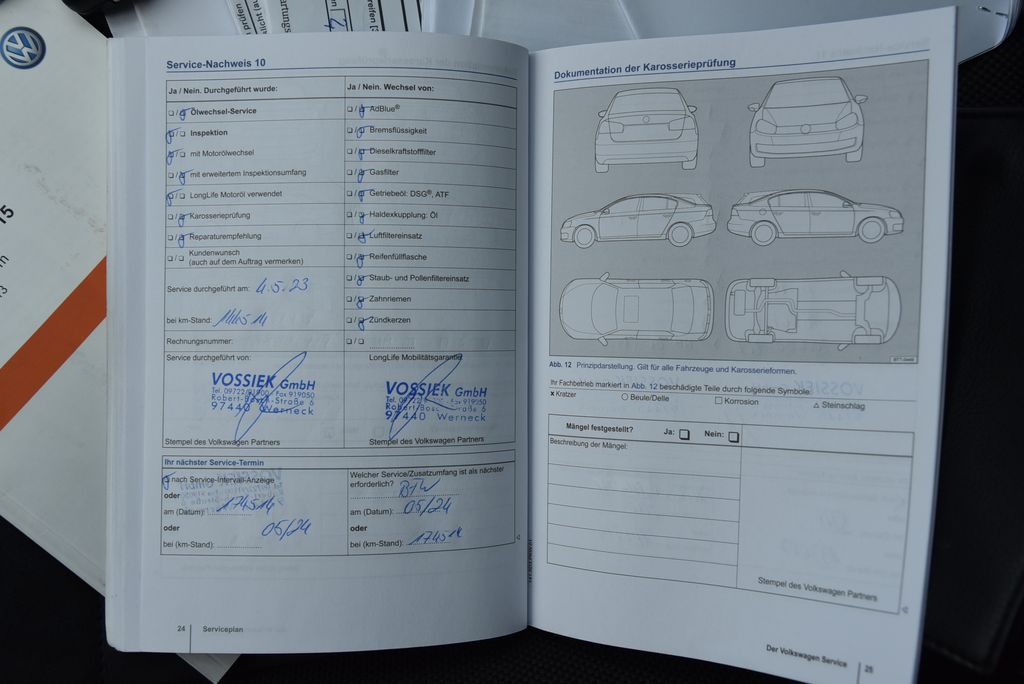 Service-Nachweis 10
Ja / Nein. Durchgeführt wurde:
Ölwechsel-Service
Inspektion
mit Motorölwechsel
mit erweitertem Inspektionsumfang
LongLife Motoröl verwendet
Karosserieprüfung
Reparaturempfehlung
Kundenwunsch
(auch auf dem Auftrag vermerken)
Service durchgeführt am: 4.5.23
bei km-Stand: 144514
Rechnungsnummer:
Ja / Nein. Wechsel von:
AdBlue®
Bremsflüssigkeit
Dieselkraftstofffilter
Gasfilter
Getriebeöl: DSG®, ATF
Haldexkupplung: Öl
Luftfiltereinsatz
Reifenfüllflasche
Staub- und Pollenfiltereinsatz
Zahnriemen
Zündkerzen
Service durchgeführt von:
VOSSIEK GmbH
Tel. 09722/91900 Fax 919050
Robert-Bosch-Straße 6
97440 Werneck
Stempel des Volkswagen Partners
LongLife Mobilitätsgarantie
VOSSIEK GmbH
Robert-Bosch-Straße 6
97440 Werneck
Stempel des Volkswagen Partners
Ihr nächster Service-Termin
nach Service-Intervall-Anzeige
oder
am (Datum): 174514
oder
05/24
bei (km-Stand):
Welcher Service/Zusatzumfang ist als nächster
erforderlich?
am (Datum): 05/24
oder
bei (km-Stand): 174514
24 Serviceplan
Dokumentation der Karosserieprüfung
Abb. 12 Prinzipdarstellung. Gilt für alle Fahrzeuge und Karosserieformen.
Ihr Fachbetrieb markiert in Abb. 12 beschädigte Teile durch folgende Symbole:
x Kratzer
Beule/Delle
Korrosion
Steinschlag
Mängel festgestellt? Ja: Nein:
Beschreibung der Mängel:
Stempel des Volkswagen Partners
Der Volkswagen Service 25